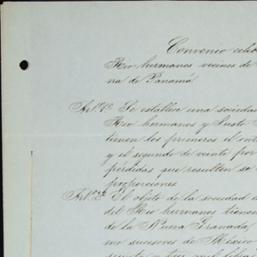 Convenio cele
Rio hermanos vecinos de
ra de Panamá
Art.º 1.º Se establece una sociedad
Rio hermanos y Justo
tienen los primeros el
y el segundo de veinte por
pérdidas que resulten
proporciones
Art.º 2.º El objeto de la sociedad
del Rio hermanos
de la Nueva Granada,
sus sucesores de México